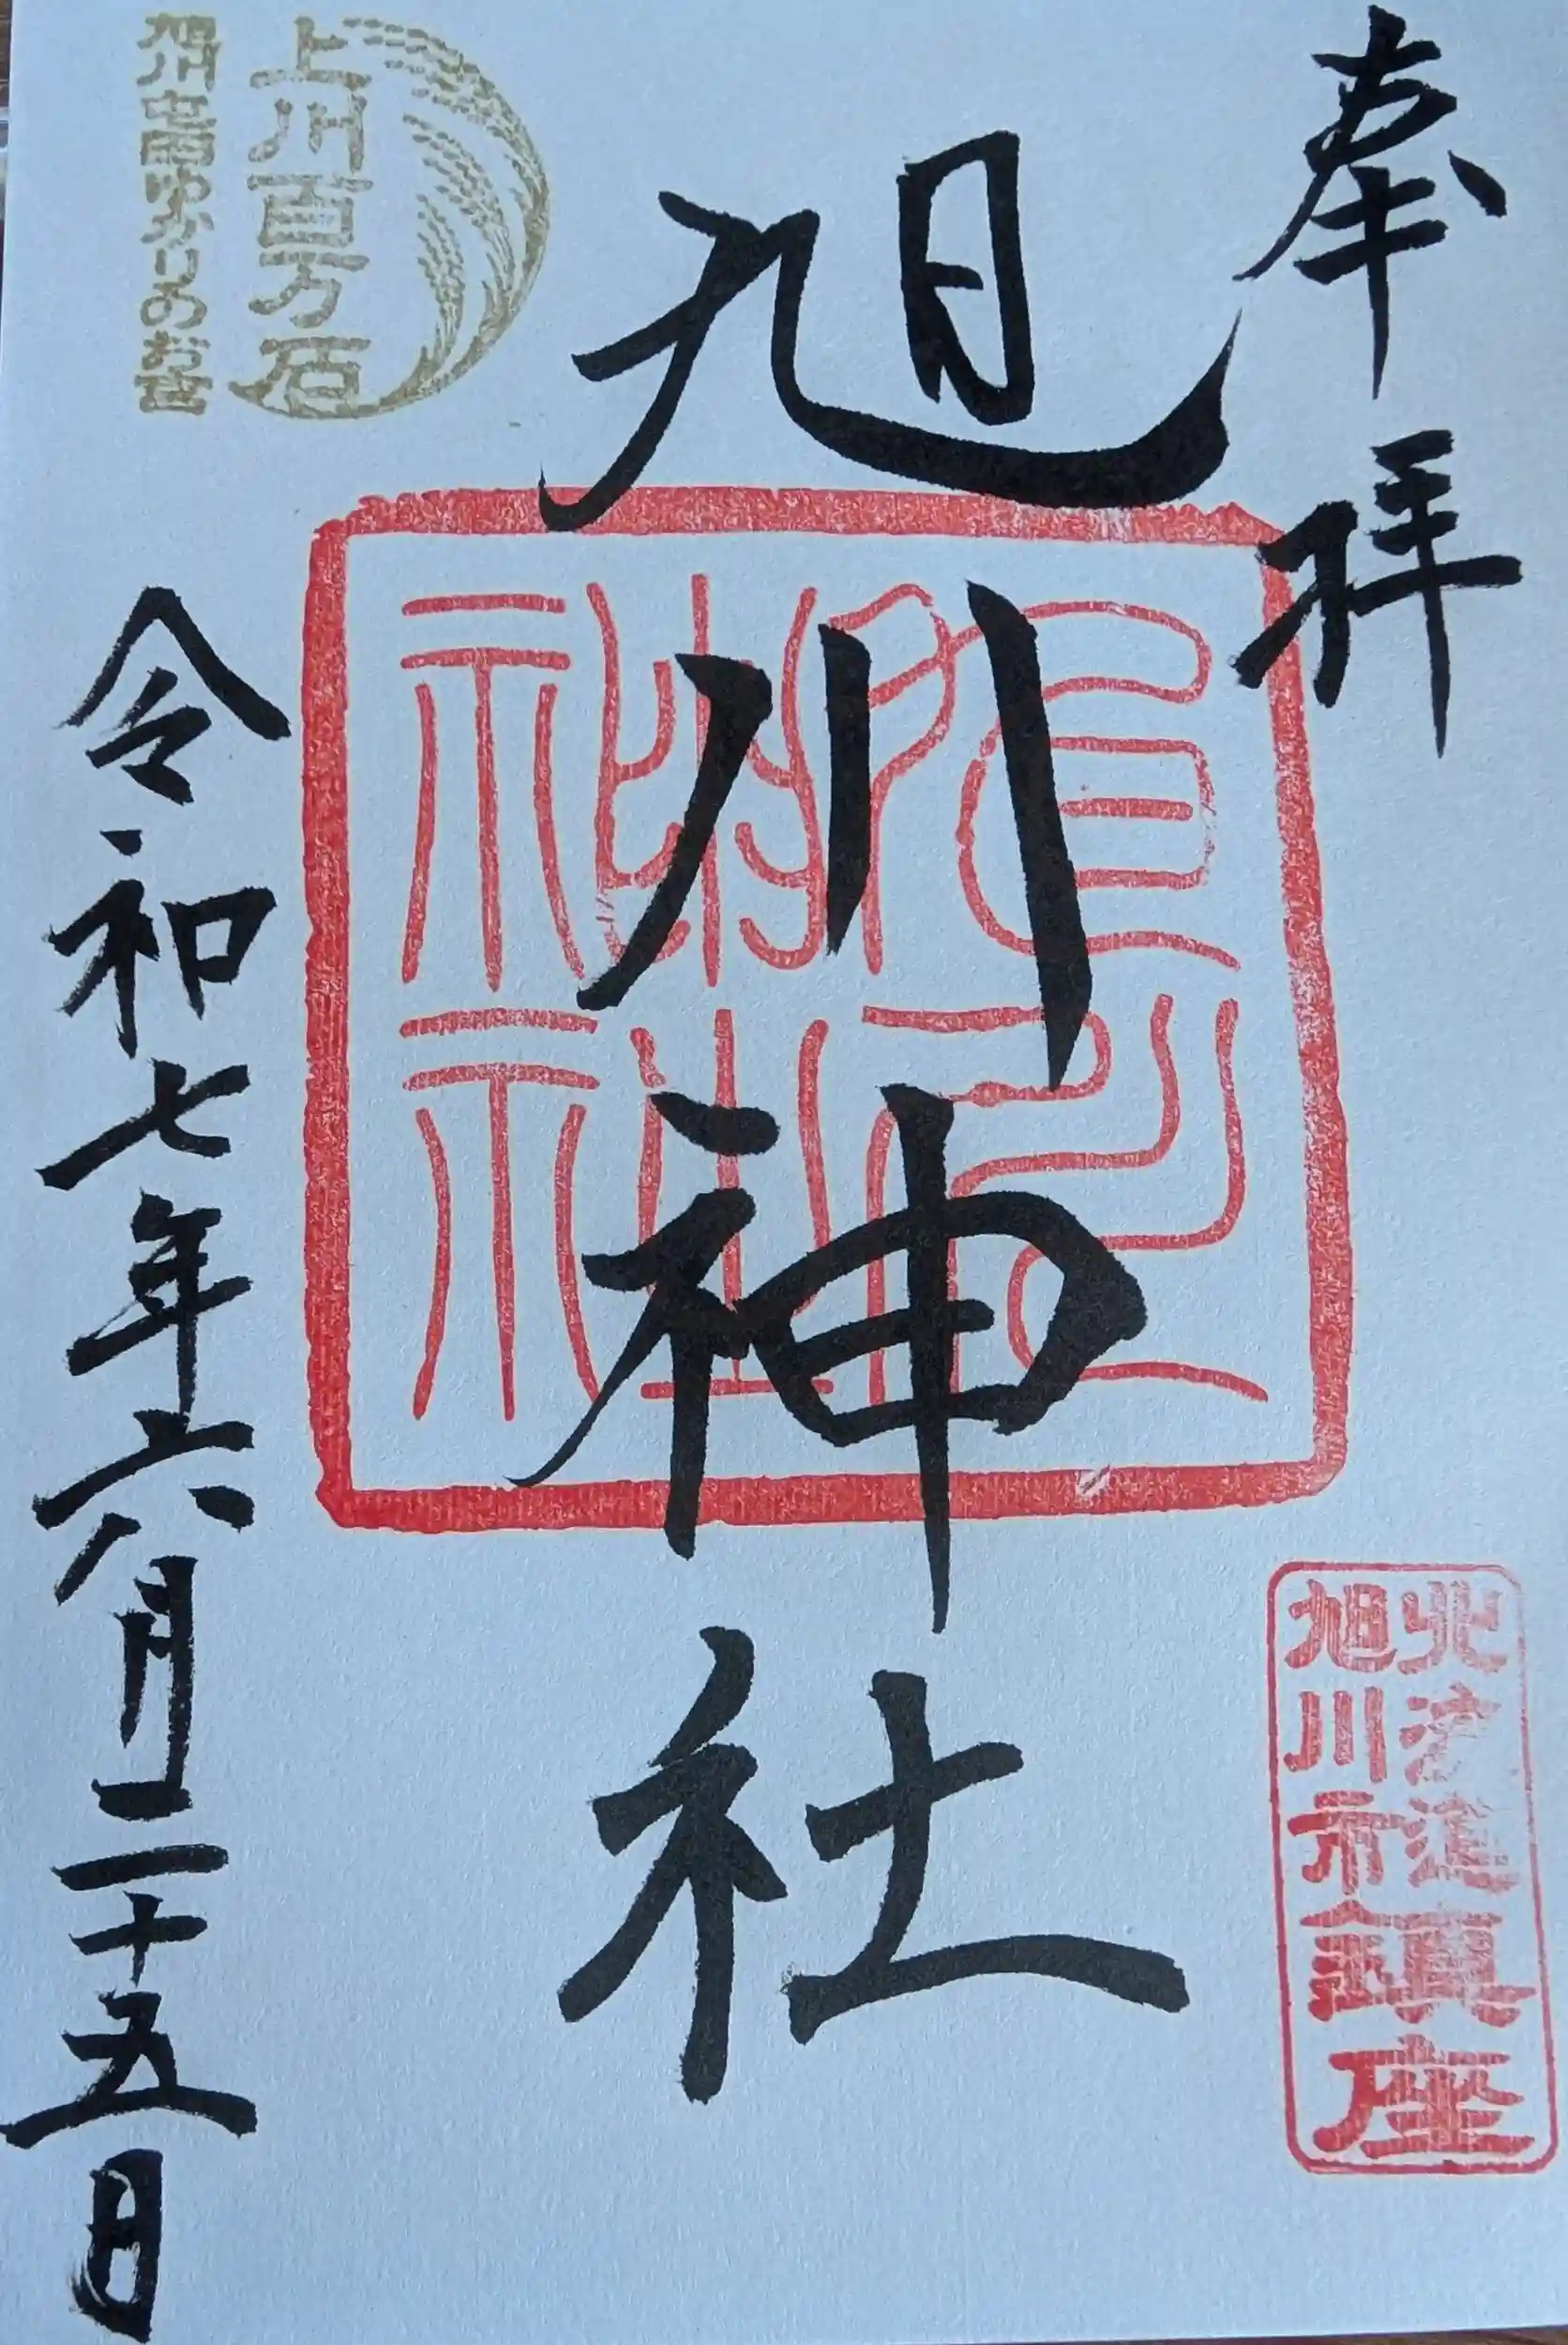 奉拝
北海道
旭川市
鎮座
旭川神社
上川百万石
旭川屯田ゆかりのお宮
令和七年六月二十五日